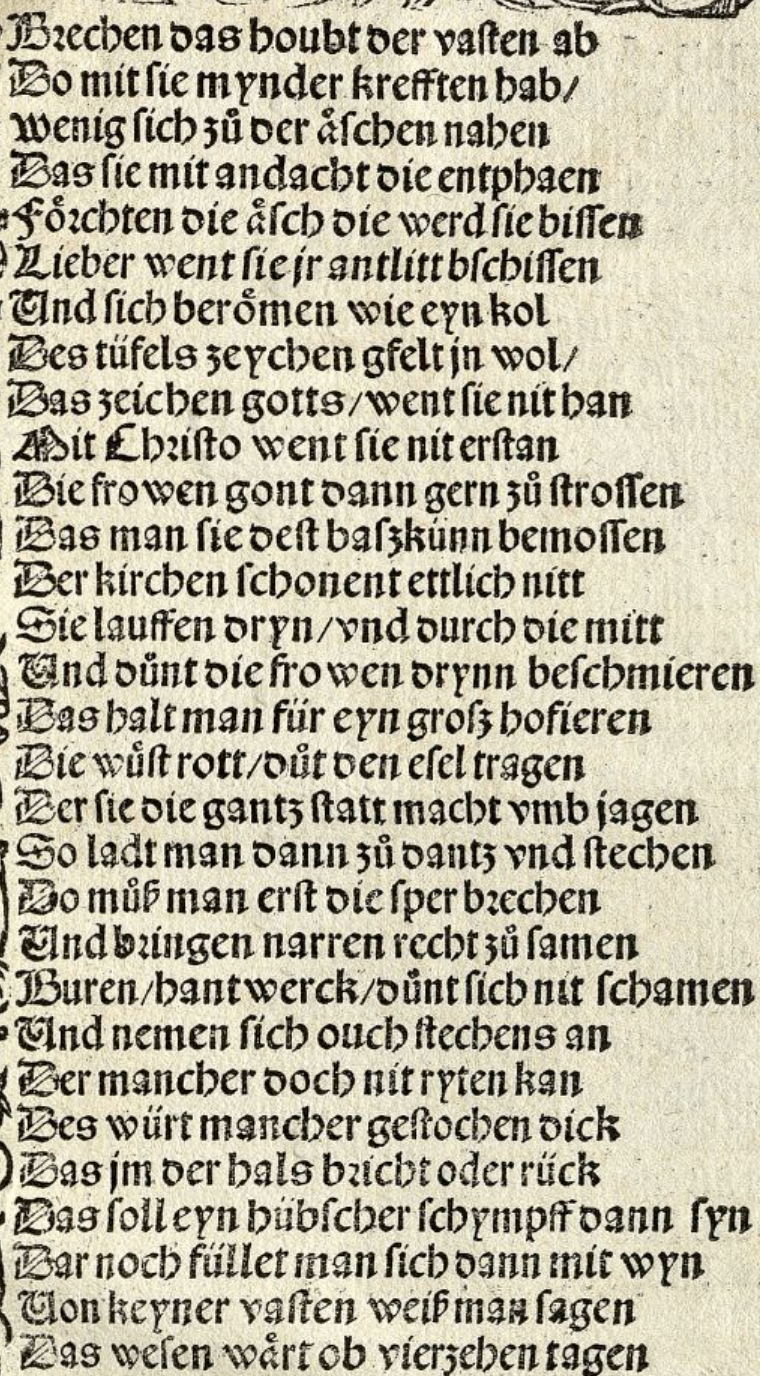 Brechen das houbt der vasten ab
Do mit sie mynder krefften hab/
Wenig sich zů der åschen nahen
Das sie mit andacht die entphaen
Fôrchten die åsch die werd sie bissen
Lieber went sie jr antlitt bschissen
Und sich berômen wie eyn kol
Des tüfels zeychen gfelt jn wol/
Das zeichen gotts/went sie nit han
Mit Christo went sie nit erstan
Die frowen gont dann gern zů strossen
Das man sie dest baszkünn bemossen
Der kirchen schonent ettlich nitt
Sie lauffen dryn/vnd durch die mitt
Und důnt die frowen drynn beschmieren
Das halt man für eyn grosz hofieren
Die wůst rott/důt den esel tragen
Der sie die gantz statt macht vmb jagen
So ladt man dann zů dantz vnd stechen
Do můß man erst die sper brechen
Und bringen narren recht zů samen
Buren/hantwerck/důnt sich nit schamen
Und nemen sich ouch stechens an
Der mancher doch nit ryten kan
Des würt mancher gestochen dick
Das jm der hals bricht oder rück
Das soll eyn hübscher schympff dann syn
Dar noch füllet man sich dann mit wyn
Von keyner vasten weiß man sagen
Das wesen wårt ob vierzehen tagen